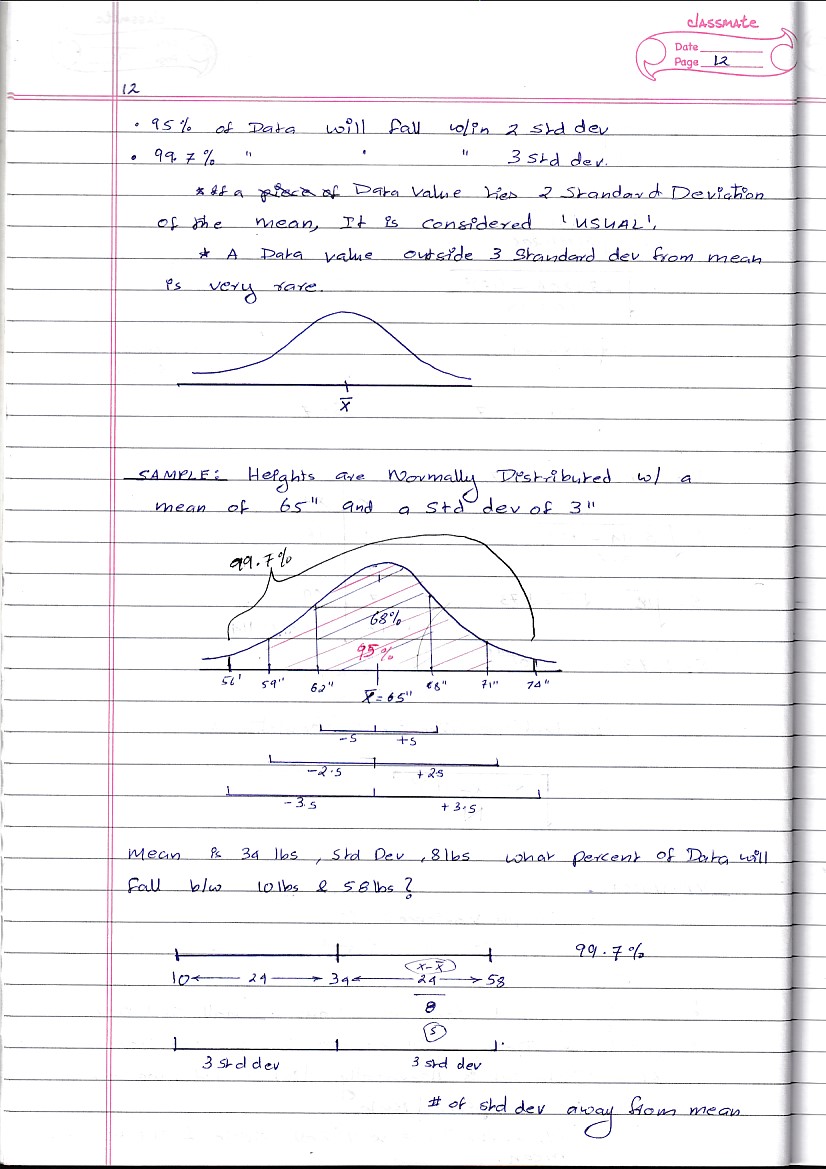 classmate
Date
Page 12
12
• 95% of Data will fall w/in 2 std dev
• 99.7% " " " 3 std dev.
* If a piece of Data value lies 2 Standard Deviation
of the mean, It is considered 'USUAL'.
* A Data value outside 3 standard dev from mean
is very rare.
x̄
SAMPLE: Heights are Normally Distributed w/ a
mean of 65" and a std dev of 3"
99.7%
68%
95%
56' 59" 62" x̄=65" 68" 71" 74"
-s +s
-2.s +2s
-3.s +3.s
Mean is 34 lbs, Std Dev, 8lbs what percent of Data will
fall b/w 10lbs & 58lbs?
99.7%
x-x̄
10 ← 24 → 34 ← 24 → 58
8
s
3 std dev 3 std dev
# of std dev away from mean